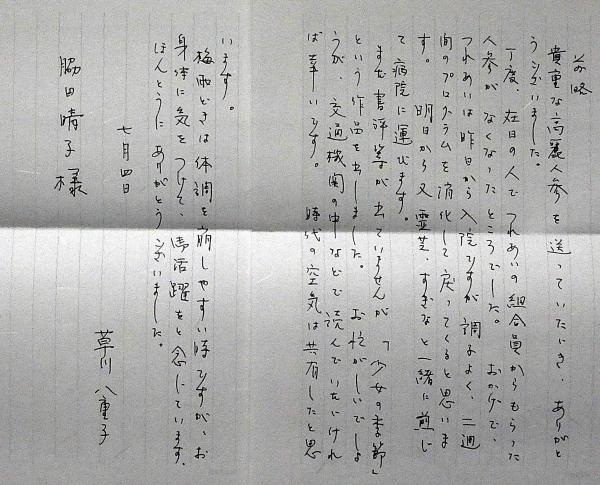 前略
貴重な高麗人参を送っていただき、ありがと
うございました。
丁度、在日の人でつれあいの組合員からもらった
人参がなくなったところでした。おかげで、
つれあいは昨日から入院ですが調子よく、二週
間のプログラムを消化して戻ってくると思いま
す。明日から又、霊芝、すぎなと一緒に煎じ
て病院に運びます。
まだ書評等が出ていませんが「少女の季節」
という作品を出しました。お忙がしいでしょ
うが、交通機関の中などで読んでいただけれ
ば幸いです。時代の空気は共有したと思
います。
梅雨どきは体調を崩しやすい時ですが、お
身体に気をつけて、御活躍をと念じています。
ほんとうにありがとうございました。
七月四日
草川八重子
脇田晴子様